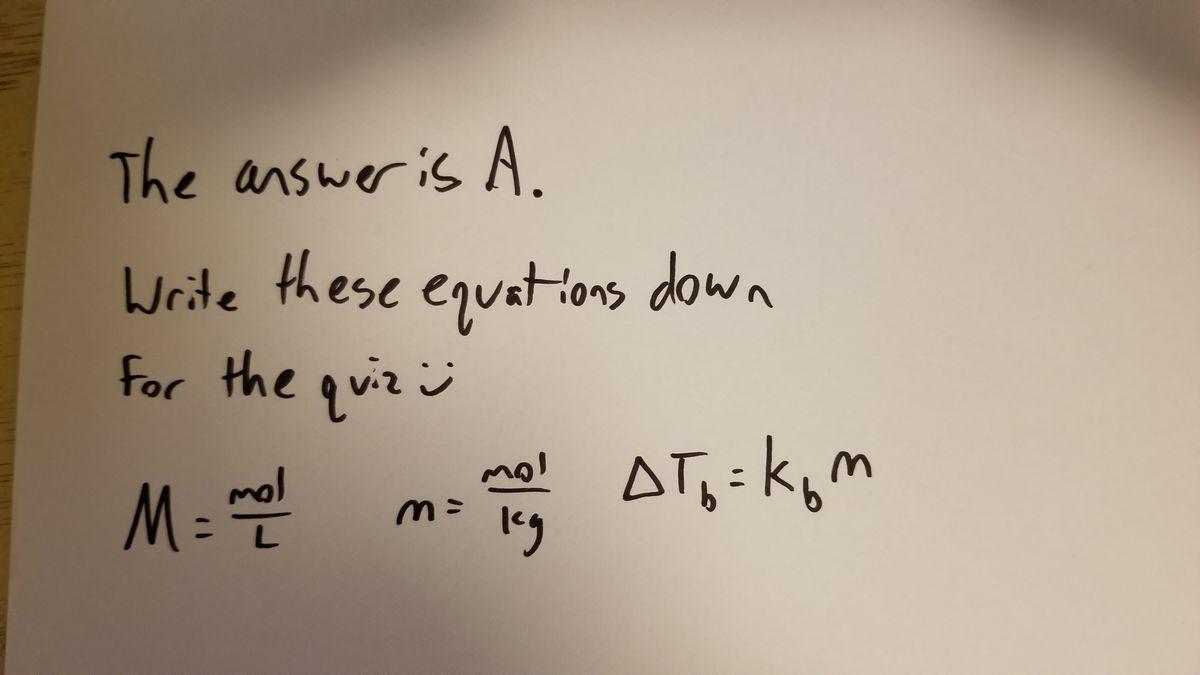 The answer is A.
Write these equations down
for the quiz ü
M = mol/L m = mol/kg ΔT_b = k_b m